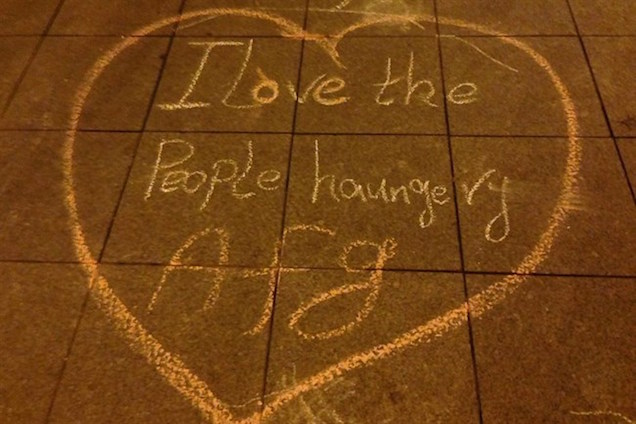 I love the
People haungery
Afg